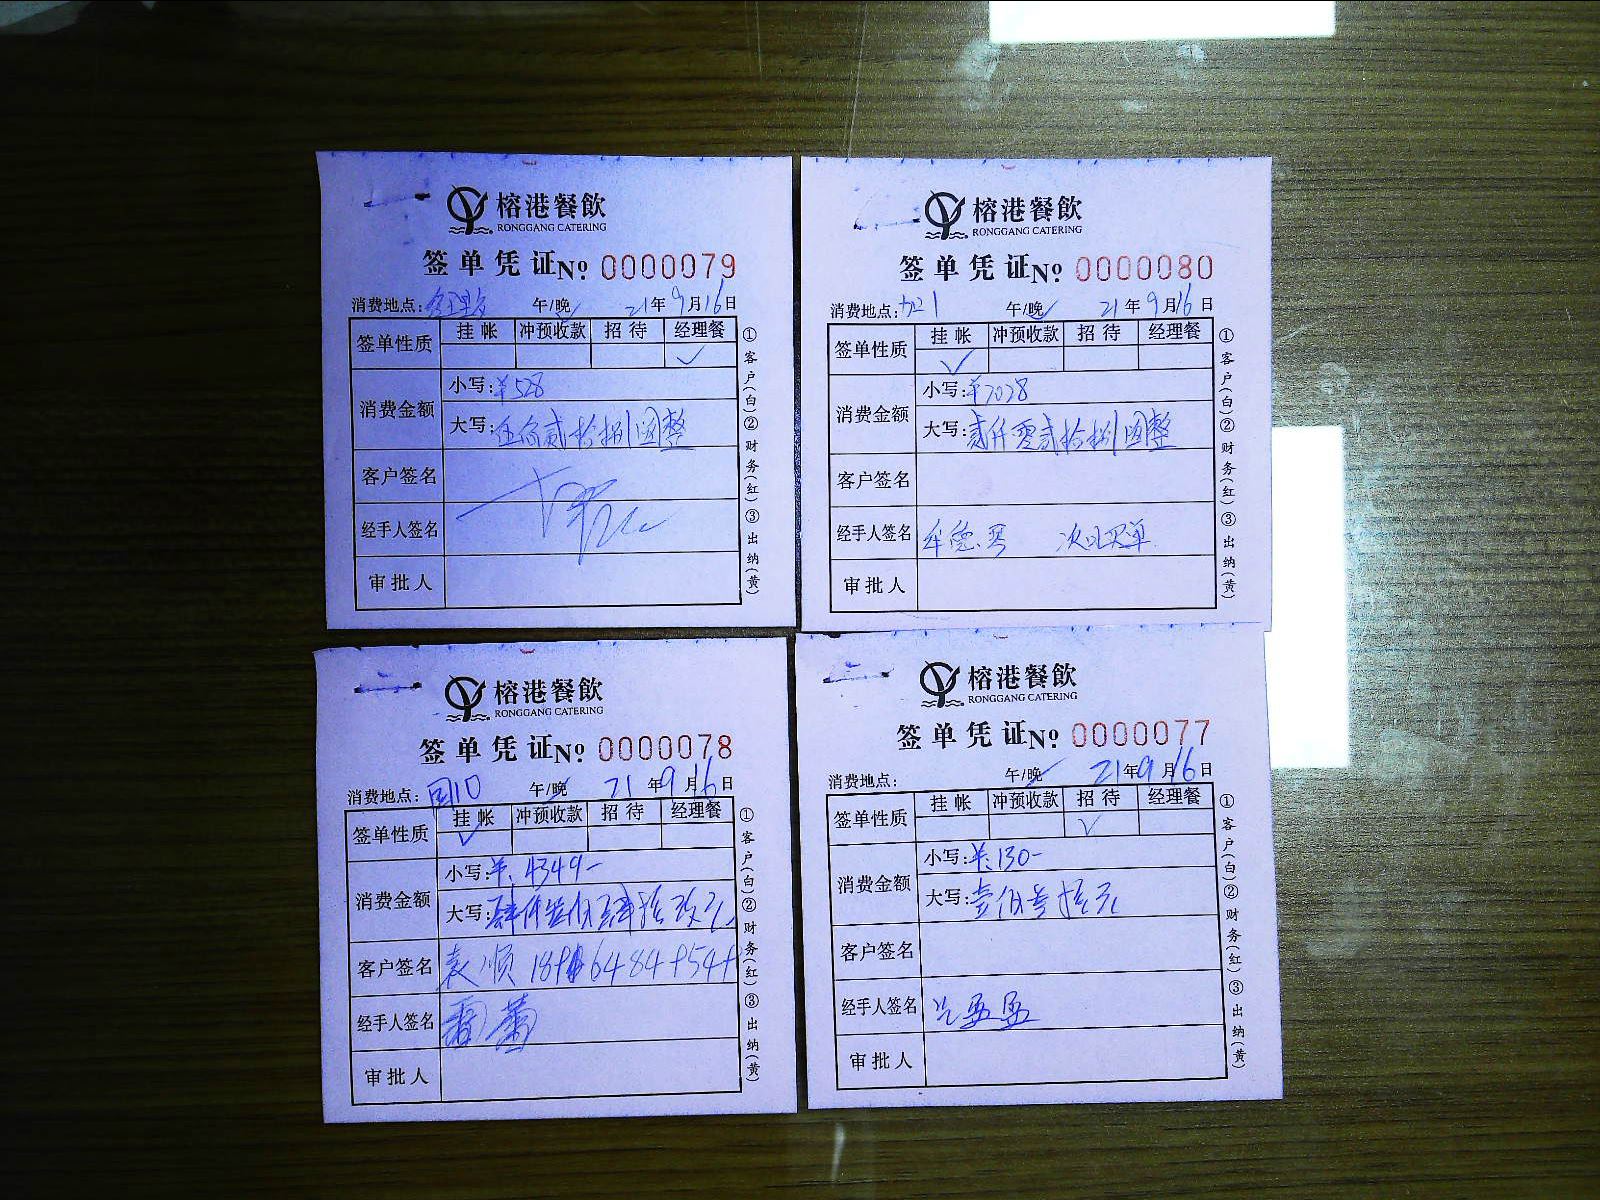 榕港餐飲
RONGGANG CATERING
签单凭证 № 0000079
消费地点: 午/晚 21年9月16日
签单性质 挂帐 冲预收款 招待 经理餐
✓
消费金额 小写:¥528
大写:伍佰贰拾捌圆整
客户签名
经手人签名
审批人
①客户(白)②财务(红)③出纳(黄)
榕港餐飲
RONGGANG CATERING
签单凭证 № 0000080
消费地点: 午/晚 21年9月16日
签单性质 挂帐 冲预收款 招待 经理餐
✓
消费金额 小写:¥2028
大写:贰仟零贰拾捌圆整
客户签名
经手人签名 牟德 次日买单
审批人
①客户(白)②财务(红)③出纳(黄)
榕港餐飲
RONGGANG CATERING
签单凭证 № 0000078
消费地点: 午/晚 21年9月16日
签单性质 挂帐 冲预收款 招待 经理餐
✓
消费金额 小写:¥:4349-
大写:肆仟叁佰肆拾玖元
客户签名 袁顺
经手人签名
审批人
①客户(白)②财务(红)③出纳(黄)
榕港餐飲
RONGGANG CATERING
签单凭证 № 0000077
消费地点: 午/晚 21年9月16日
签单性质 挂帐 冲预收款 招待 经理餐
✓
消费金额 小写:¥:130-
大写:壹佰叁拾元
客户签名
经手人签名
审批人
①客户(白)②财务(红)③出纳(黄)